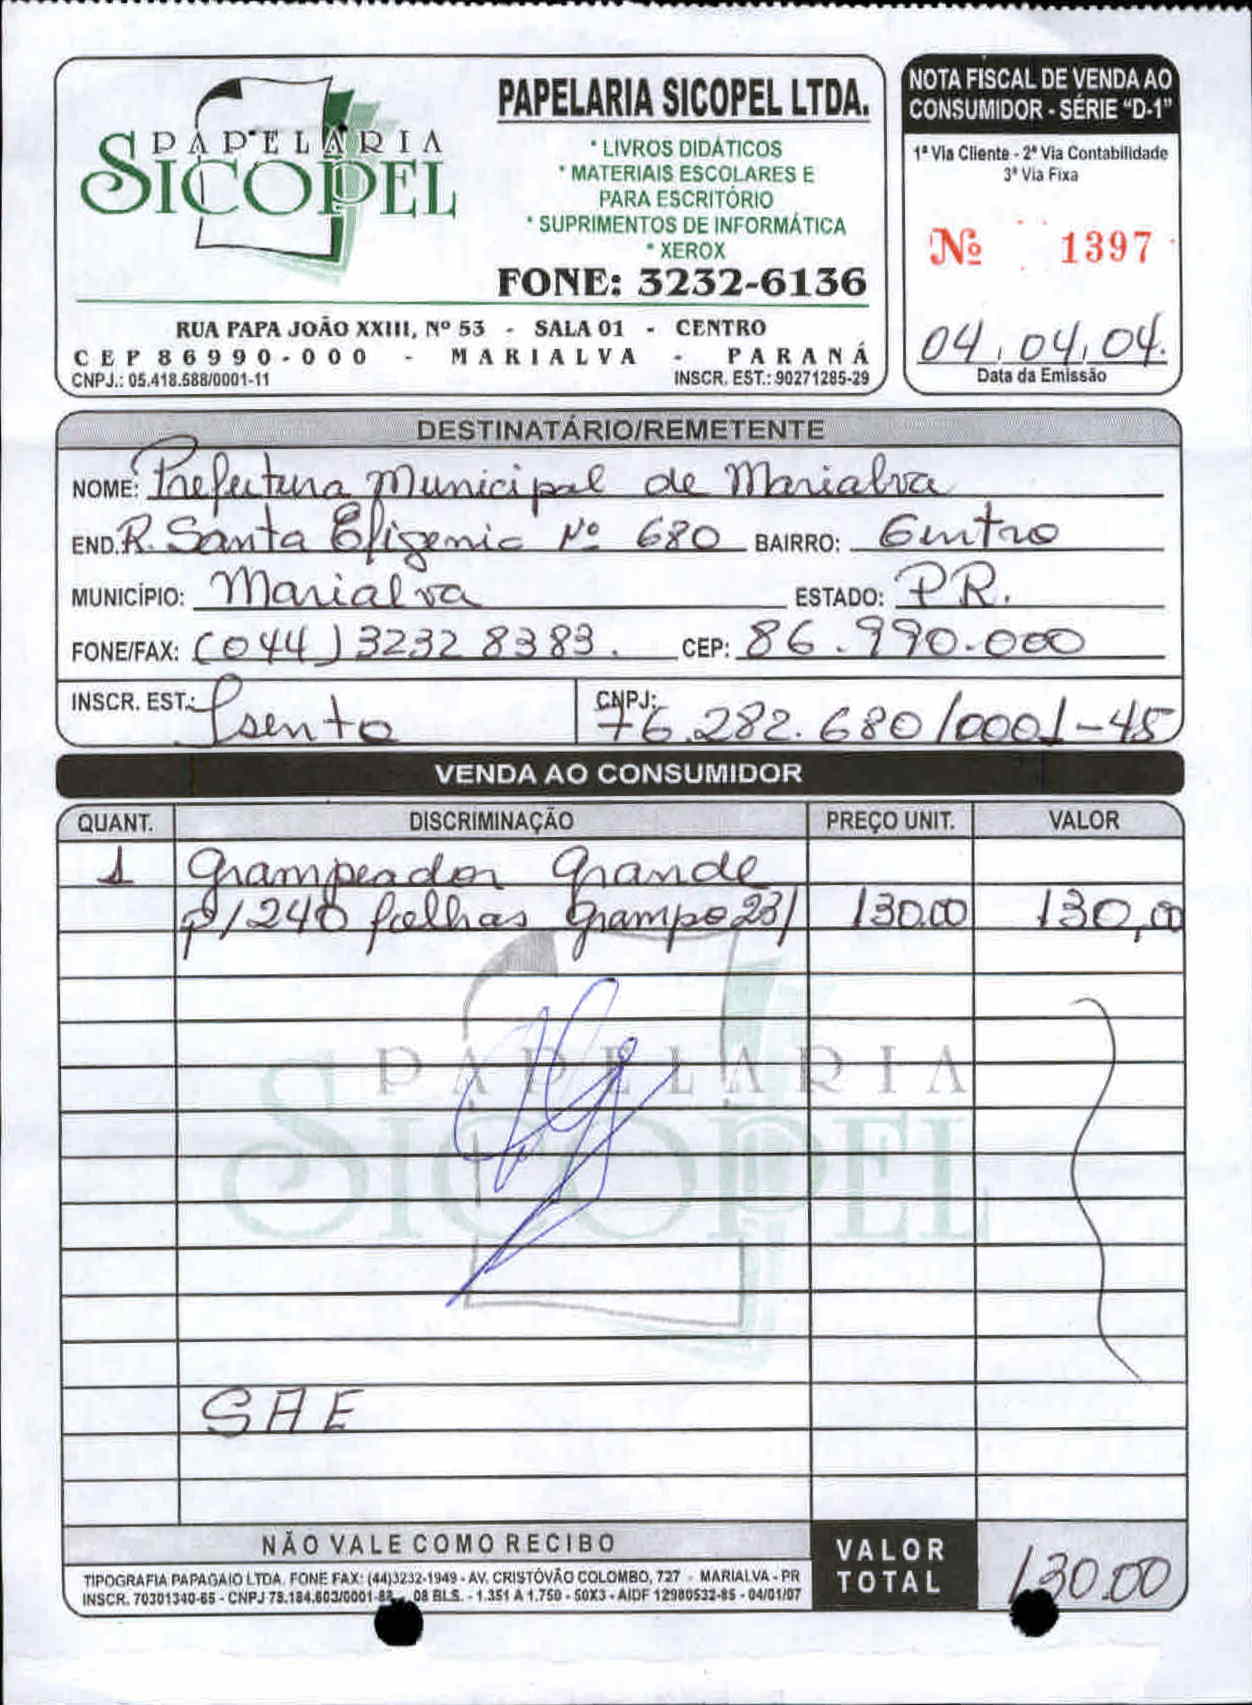 PAPELARIA
SICOPEL
PAPELARIA SICOPEL LTDA.
* LIVROS DIDÁTICOS
* MATERIAIS ESCOLARES E
PARA ESCRITÓRIO
* SUPRIMENTOS DE INFORMÁTICA
* XEROX
FONE: 3232-6136
RUA PAPA JOÃO XXIII, Nº 53 - SALA 01 - CENTRO
CEP 86990-000 - MARIALVA - PARANÁ
CNPJ.: 05.418.588/0001-11 INSCR. EST.: 90271285-29
NOTA FISCAL DE VENDA AO
CONSUMIDOR - SÉRIE "D-1"
1ª Via Cliente - 2ª Via Contabilidade
3ª Via Fixa
Nº 1397
04, 04, 04.
Data da Emissão
DESTINATÁRIO/REMETENTE
NOME: Prefeitura Municipal de Marialva
END. R. Santa Efigenia Nº 680 BAIRRO: Centro
MUNICÍPIO: Marialva ESTADO: PR.
FONE/FAX: (044) 3232 8383. CEP: 86.990.000
INSCR. EST.: Isento CNPJ: 76.282.680/0001-45
VENDA AO CONSUMIDOR
QUANT. DISCRIMINAÇÃO PREÇO UNIT. VALOR
1 Grampeador Grande
p/240 folhas Grampo 23/ 130.00 130,00
PAPELARIA
SICOPEL
SAE
NÃO VALE COMO RECIBO
VALOR TOTAL 130.00
TIPOGRAFIA PAPAGAIO LTDA. FONE FAX: (44)3232-1949 - AV. CRISTÓVÃO COLOMBO, 727 - MARIALVA - PR
INSCR. 70301340-65 - CNPJ 78.184.603/0001-88 - 08 BLS. - 1.351 A 1.750 - 50X3 - AIDF 12980532-85 - 04/01/07